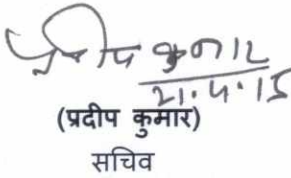 प्रदीप कुमार
21.4.15
(प्रदीप कुमार)
सचिव